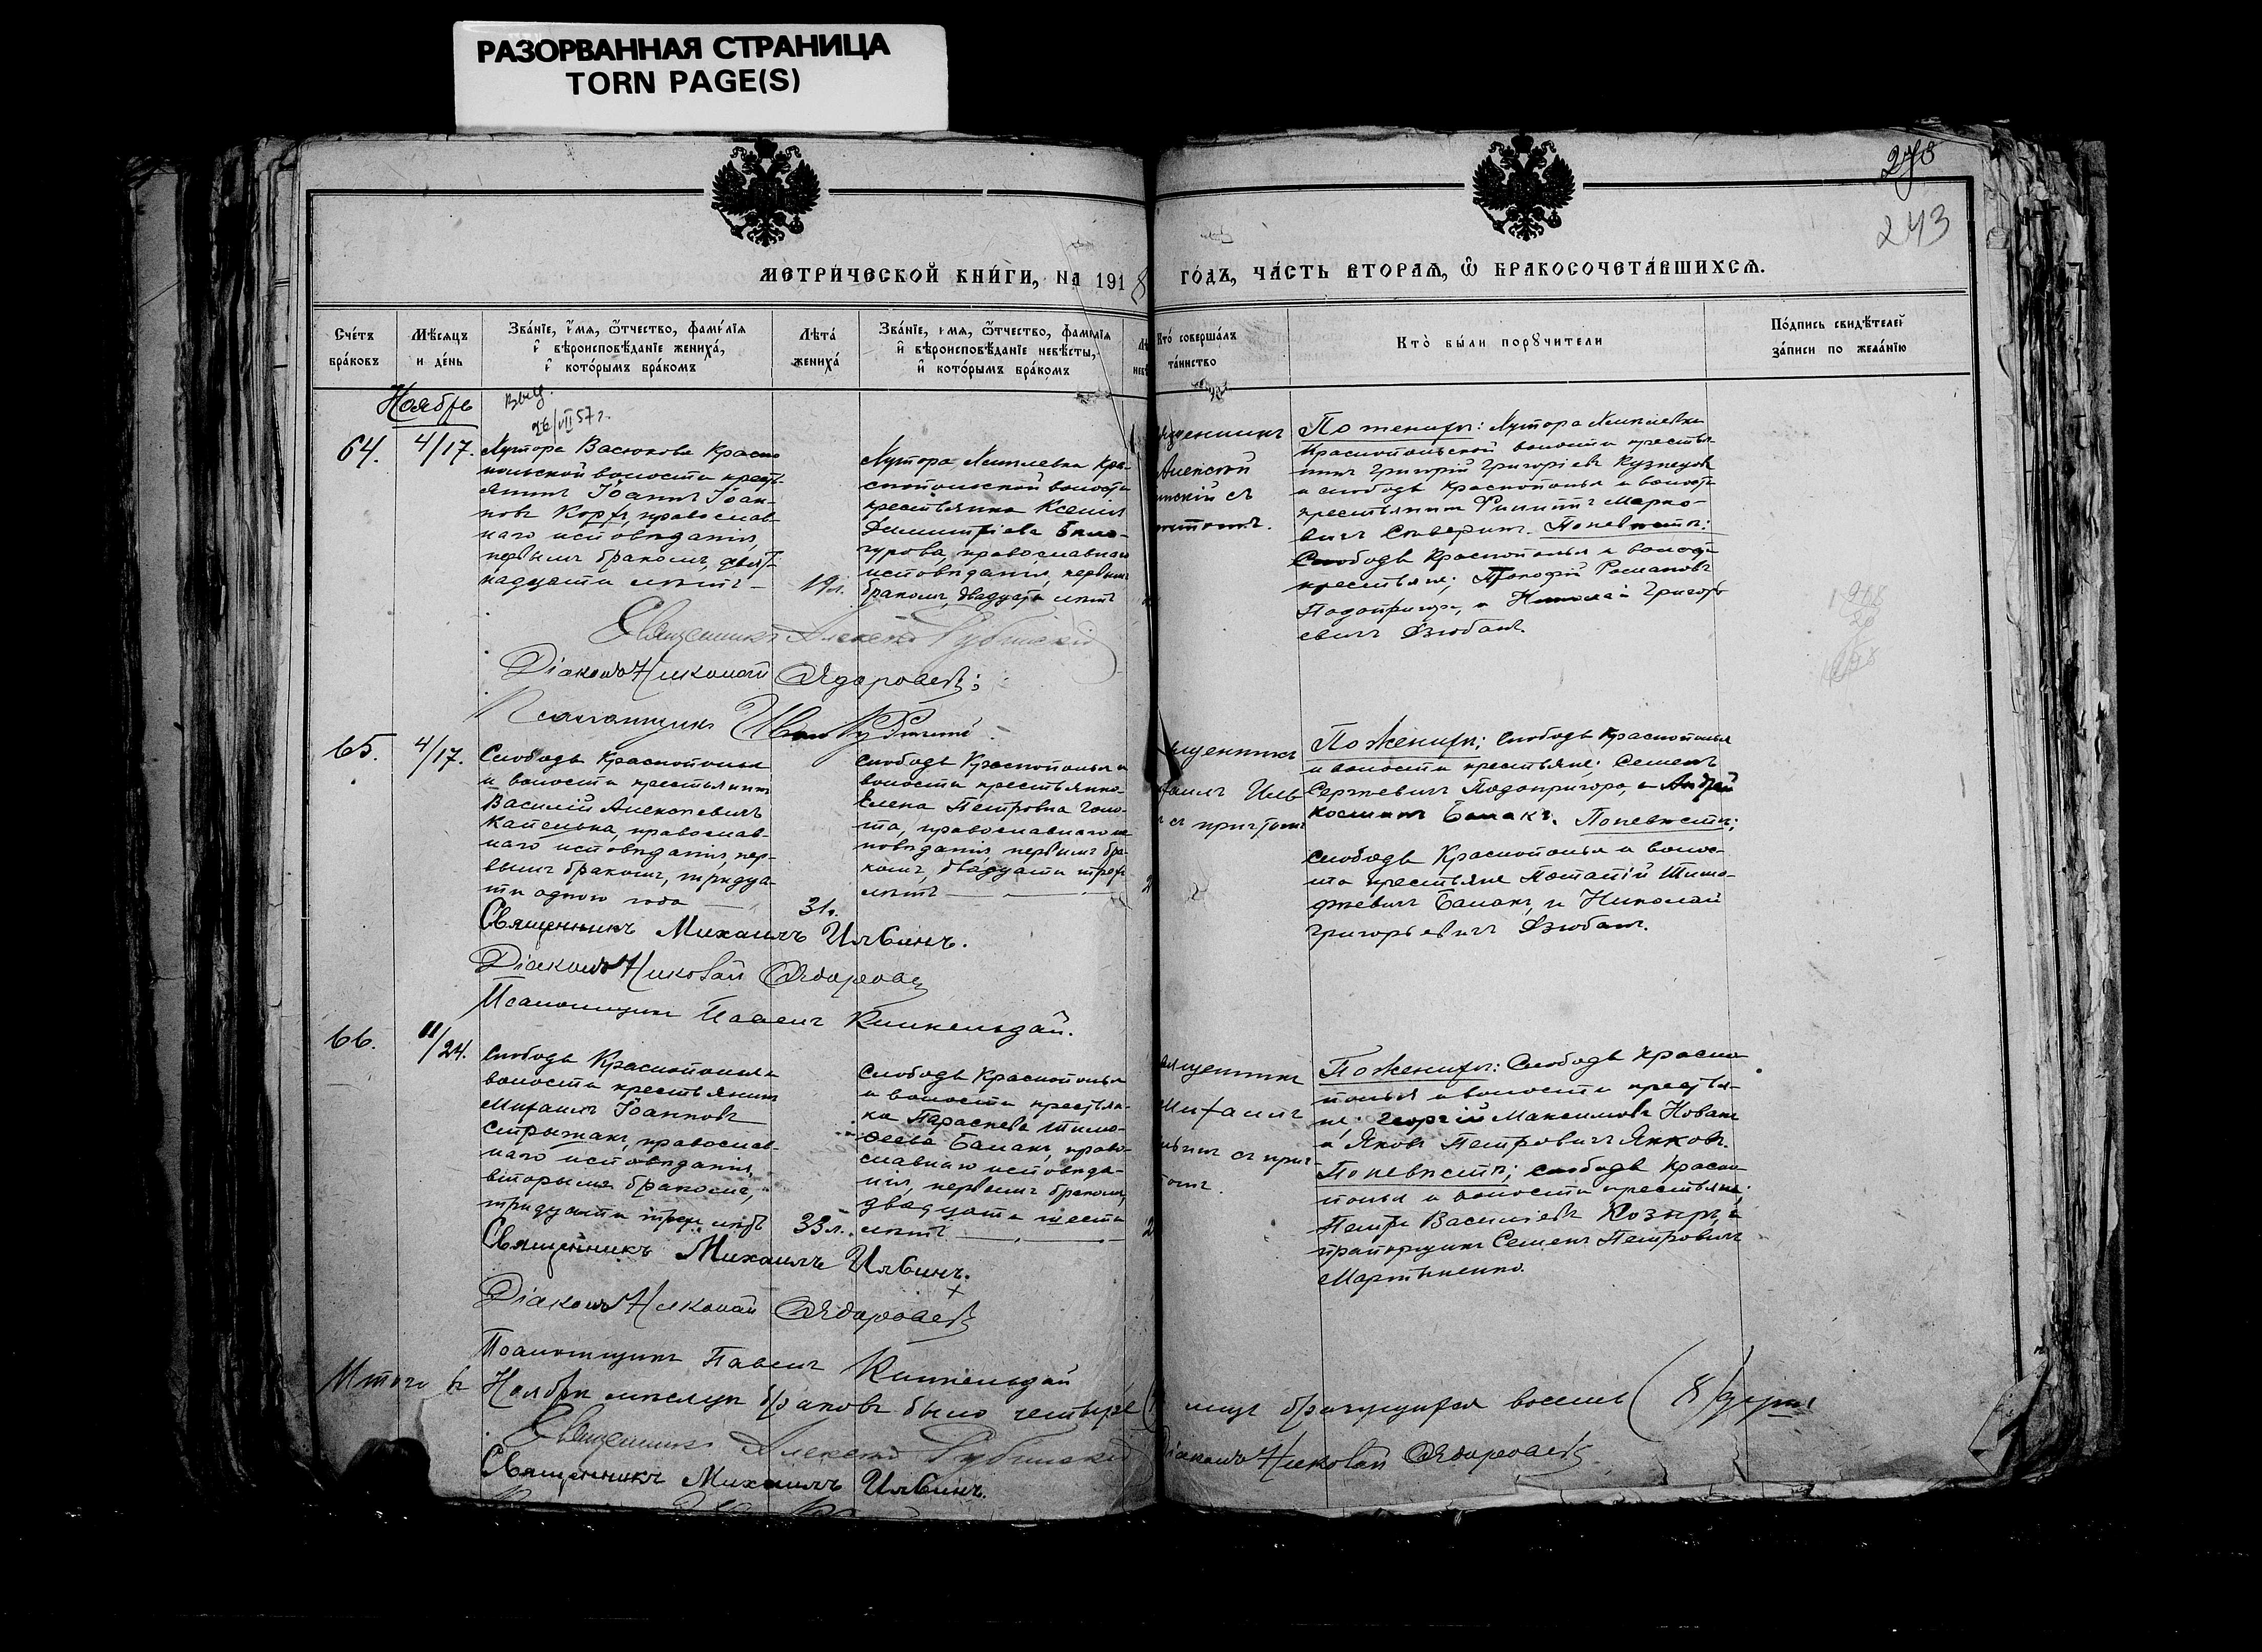 РАЗОРВАННАЯ СТРАНИЦА
TORN PAGE(S)
278
243
МЕТРИ́ЧЕСКОЙ КНИ́ГИ, НА 1918
ГО́ДЪ, ЧА́СТЬ ВТОРАЯ, Ѡ БРАКОСОЧЕТА́ВШИХСЯ.
Сче́тъ бра́ковъ
Мѣсяцъ и де́нь
Зва́нїе, и́мя, ѻтчество, фами́лїя и҆ вѣроисповѣданїе жениха̀, и҆ кото́рымъ бра́комъ
Лѣта̀ жениха̀
Зва́нїе, и́мя, ѻтчество, фами́лїя и҆ вѣроисповѣданїе невѣсты, и҆ кото́рымъ бра́комъ
Кто̀ соверша́лъ та́инство
Кто̀ бы́ли порꙋчители
По́дпись свидѣтелей за́писи по жела́нїю
Ноябрь
26/VII 57 г.
64.
4/17.
Хутора Васюкова Красно
польской волости кресть
янинъ Іоаннъ Іоан-
новъ Корж, православ-
наго исповѣданія,
первымъ бракомъ, девят-
надцати лѣтъ
19 л.
Хутора Хмылевка Кра-
снопольской волости
крестьянка Ксенія
Димитріева Бело-
гурова, православнаго
исповѣданія, первымъ
бракомъ, двадцати лѣтъ
щенникъ
Алексѣй
инскій съ
По женихѣ: Хутора Хмылевки
Краснопольской волости крестья
нинъ Григорій Григоріевъ Кузнецовъ
и слободы Краснополья и волости
крестьянинъ Филиппъ Марко-
вичъ Северинъ. По невѣстѣ:
Слободы Краснополья и волости
крестьяне; Прокофій Романовъ
Подопригора, и Николай Григорь
евичъ Дзюбанъ.
Священникъ Алексѣй Рубинскій
Діаконъ Николай Ѳедоровъ
Псаломщикъ Иванъ
65.
4/17.
Слободы Краснополья
и волости крестьянинъ
Василій Алексѣевичъ
Капелька, православ-
наго исповѣданія, пер-
вымъ бракомъ, тридца-
ти одного года
31 г.
Слободы Краснополья и
волости крестьянка
Елена Петровна Голо-
та, православнаго ис
повѣданія, первымъ бра-
комъ, двадцати трехъ
лѣтъ
щенникъ
хаилъ Иль
съ причтомъ
По женихѣ; Слободы Краснополья
и волости крестьяне; Семенъ
Сергѣевичъ Подопригора, и Андрей
Косминъ Бамакъ. По невѣстѣ;
Слободы Краснополья и волос-
ти крестьяне Потапій Тимо-
фѣевичъ Бамакъ, и Николай
Григорьевичъ Дзюбанъ.
Священникъ Михаилъ Ильинъ.
Діаконъ Николай Ѳедоровъ
Псаломщикъ Павелъ Кишкельдай.
66.
11/24.
Слободы Краснополья и
волости крестьянинъ
Михаилъ Іоанновъ
Стрыжакъ, православ-
наго исповѣданія,
вторымъ бракомъ,
тридцати трехъ лѣтъ
33 л.
Слободы Краснополья
и волости крестьян-
ка Параскева Тимо-
ѳеева Бамакъ, право-
славнаго исповѣда-
нія, первымъ бракомъ,
двадцати шести
лѣтъ
ященникъ
Михаилъ
ьинъ съ прич
томъ.
По женихѣ: Слободы Красно
полья и волости крестья-
не, Георгій Максимовъ Новакъ
и Яковъ Петровичъ Янковъ.
По невѣстѣ; слободы Красно
полья и волости крестьяне;
Петръ Василіевъ Козырь, и
прапорщикъ Семенъ Петровичъ
Мартыненко.
Священникъ Михаилъ Ильинъ.
Діаконъ Николай Ѳедоровъ
Псаломщикъ Павелъ Кишкельдай
Итого въ Ноябрѣ мѣсяцѣ браковъ было четыре
лицъ брачущихся восемь (8) душъ
Священникъ Алексѣй Рубинскій
Діаконъ Николай Ѳедоровъ
Священникъ Михаилъ Ильинъ.